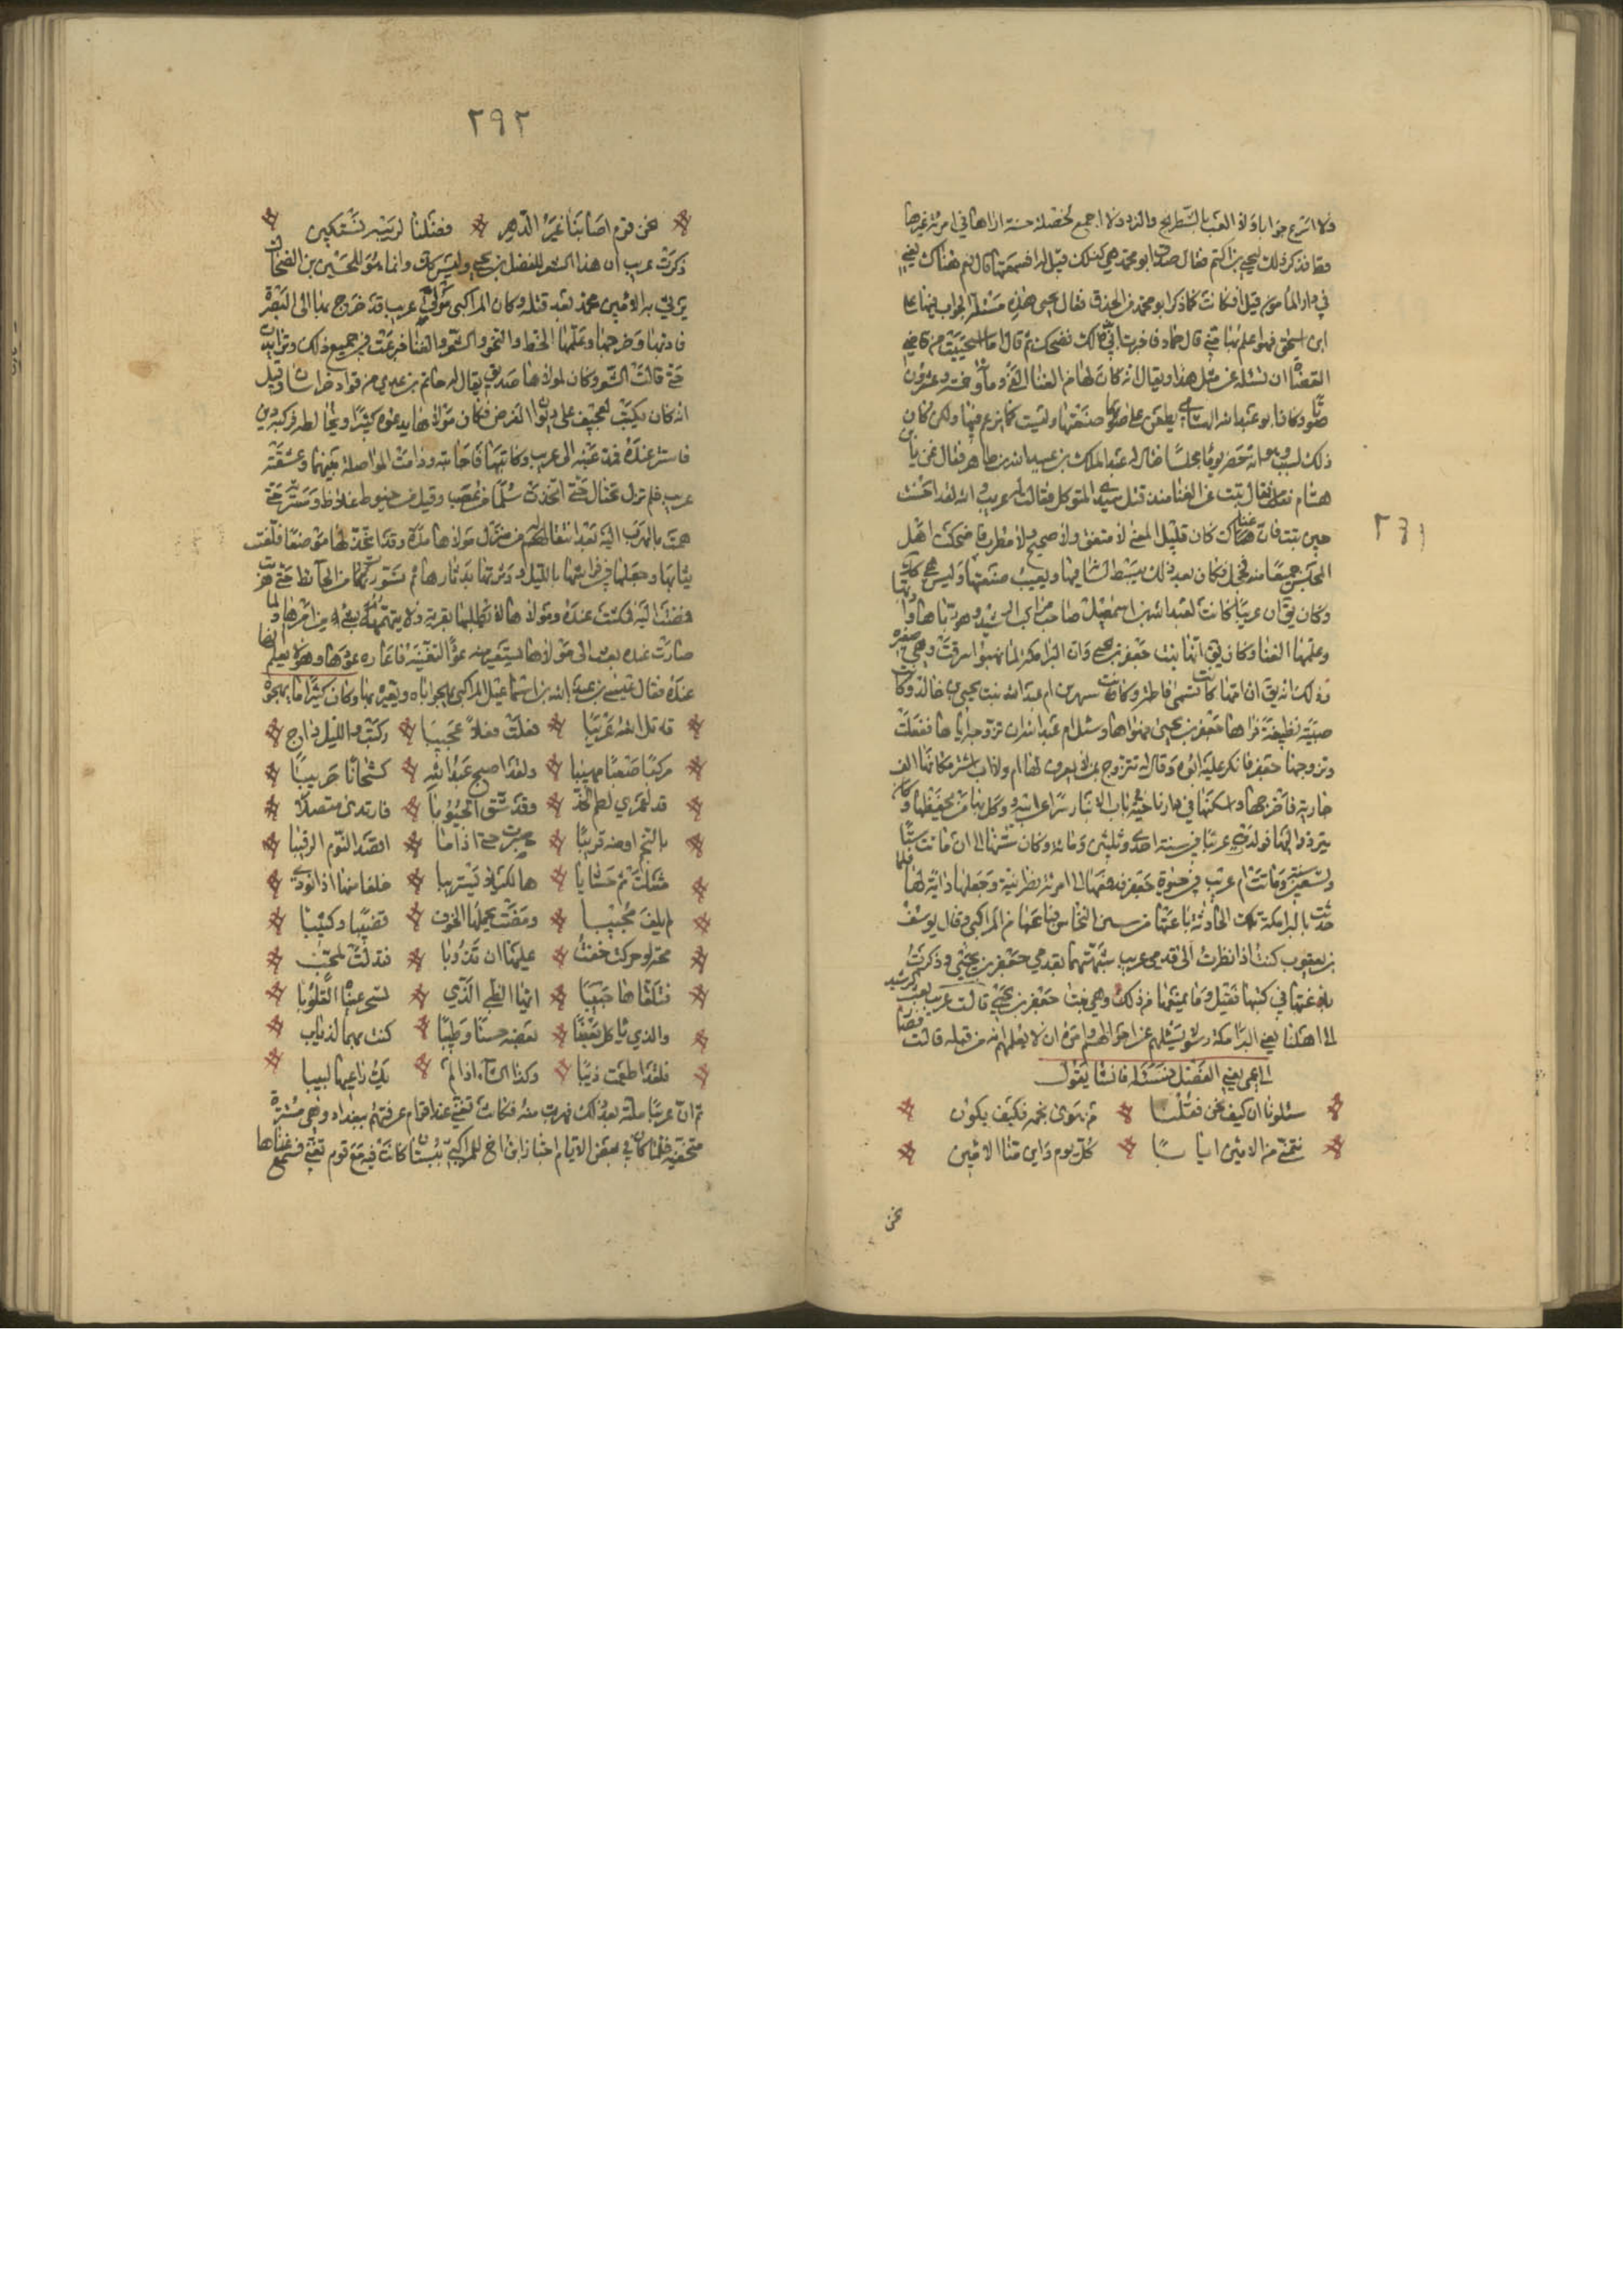 ولا اسرع جوابا ولا العب بالشطرنج والنرد ولا اجمع لخصلة حسنة اراها في امرئة غيرها
فقا فذكر ذلك ليحيى بن اكثم فقال صدق ابو محمد هي كذلك قيل له افسمعتها قال نعم هناك يعني
في دار المأمون قيل افكانت كما ذكر ابو محمد في الحذق فقال يحيى هذه مسئلة الجواب فيها على
ابن اسحق فهو اعلم بها مني قال حماد فاخبرت ابي بذلك فضحك ثم قال ما استحييت من قاضي
القضاة ان تسئله عن مثل هذا ويقال انه كان لها من الغنا الف وما وخمسة وعشرون
صوتا وكان ابو عبد الله الهشامي يطعن على صنعتها وليست كما زعم فيها ولكن كان
ذلك لسبب وهو انه حضر يوما مجلسا فقال له عبد الملك بن عبيد الله بن طاهر فقال غن يا
هشام فقال تبت عن الغنا منذ قتل سيدي المتوكل فقالت له عريب والله لقد احسنت
حين تبت فان غناك كان قليل المعنى لا متقن ولا صحيح ولا مطرب فاضحكت اهل
المجلس جميعا منه فخجل فكان بعد ذلك يبسط لسانه فيها ويعيب صنعتها وليس هي كذلك
وكان يق ان عريبا كانت لعبد الله بن اسمعيل صاحب مراكب الرشيد وهو رباها وادبها
وعلمها الغنا وكان يق انها بنت جعفر بن يحيى وان البرامكة لما نهبوا سرقت وهي صغيره
وذلك انه يق ان امها كانت تسمى فاطمة وكانت ام عبد الله بنت يحيى بن خالد وكانت
صبية نظيفة فراها جعفر بن يحيى فهواها وسئل ام عبد الله ان تزوجه اياها ففعلت
وتزوجها جعفر فانكر عليه ابوه وقال له تتزوج من لا يعرف لها ام ولا اب اشتر مكانها الف
جارية فاخرجها واسكنها في دار ناحية باب الانبار سرا عن ابيه ووكل بها من يحفظها وكان
يتردد اليها فولدت عريبا في سنة احدى وثلثين ومائة وكان سنها الى ان ماتت ستا
وتسعين وماتت ام عريب في حيوة جعفر فدفعها الى امرئة نصرانية وجعلها داية لها فلما
حدثت بالبرامكة تلك الحادثة باعتها من سبس النخاس فباعها من المراكبي وقال يوسف
بن يعقوب كنت اذا نظرت الى قدمي عريب شبهتهما بقدمي جعفر بن يحيى وذكرت
بلاغتها في كتبها فقيل وما يمنعها من ذلك وهي بنت جعفر بن يحيى قالت عريب بعث الرشيد
الى اهلنا يعني البرامكة رسولا يسئلهم عن احوالهم وامره ان لا يعلمهم انه من قبله قالت فصار
الى عمي يعني الفضل فسئله فانشا يقول
سئلونا ان كيف نحن فقلنا من هوى نجمه فكيف يكون
نتمنى من الامين ايابا كل يوم واين منا الامين
نحن
٢٩٢
نحن قوم اصابنا غير الدهر فضلنا لريبه نستكين
ذكرت عريب ان هذا الشعر للفضل بن يحيى وليس كذلك وانما هو للحسين بن الضحاك
يرثي به الامين محمد بعد قتله وكان المراكبي مولى عريب قد خرج بها الى البصرة
فادبها وخرجها وعلمها الخط والنحو والشعر والغنا فبرعت في جميع ذلك وتزايدت
حتى قالت الشعر وكان لمولاها صديق يقال له حاتم بن عدي من قواد خراسان وقيل
انه كان يكتب لعجيف على ديوان الفرض فكان مولاها يدعوه كثيرا ويخالطه فركبه دين
فاستتر عنده فمد عينه الى عريب وكاتبها فاجابته ودامت المواصلة بينهما وعشقته
عريب فلم تزل تحتال حتى اتخذت سلما من عقب وقيل من خيوط غلاظ وسترته حتى
همت بالهرب اليه بعد انتقاله من منزل مولاها مدة وقد اتخذ لها موضعا فلفت
ثيابها وجعلتها في فراشها بالليل ودثرتها بدثارها ثم تسورت من الحائط حتى هربت
فمضت اليه فمكثت عنده ومولاها لا يطلبها بقربه ولا يتهمه بشيء من امرها ولما
صارت عنده بعث الى مولاها يستعير منه عودا تغنيه فاعاره عودها وهو لا يعلم انها
عنده فقال عيسى بن عبد الله بن اسماعيل المراكبي يهجو اباه ويعيره بها وكان كثيرا ما يهجوه
قاتل الله عريبا فعلت فعلا عجيبا ركبت والليل داج
مركبا صعبا مهيبا ولقد اصبح عبد الله كشخانا حريبا
قد لعمري لطم الخد وقد شق الجيوبا فارتدى متصلا
بالنجم او منه قريبا صبرت حتى اذا ما اقصد النوم الرقيبا
مثلت ثم حشايا ها لكيلا تستريبا خلفا منها اذا نودي
لم يلف مجيبا ومضت يحملها الخوف قضيبا وكثيبا
محه لو حركت خفت عليها ان تذوبا فتدلت لمحب
فتلقاها حبيبا ايها الظبي الذي تسحر عيناه القلوبا
والذي ياكل بعضا بعضه حسنا وطيبا كنت نهبا لذياب
فلقد اطعمت ذيبا وكذا الشاة اذا لم يك راعيها لبيبا
ثم ان عريبا ملته بعد ذلك فهربت منه فكانت تغني عند اقوام عرفتهم ببغداد وهي مستترة
متخفية فلما كان في بعض الايام اجتاز ابن اخ للمراكبي ببستان كانت فيه مع قوم تغني فسمع غناها